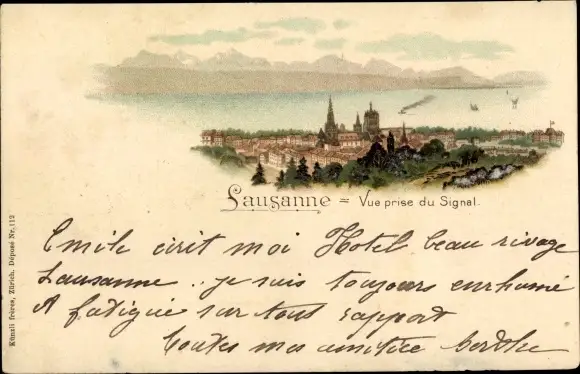 Lausanne = Vue prise du Signal.
Emile écrit moi Hotel beau rivage
Lausanne .. je suis toujours enrhumé
& fatigué sur tous rapport
Toutes mes amitiés Berthe
Künzli frères, Zürich. Déposé Nr. 112